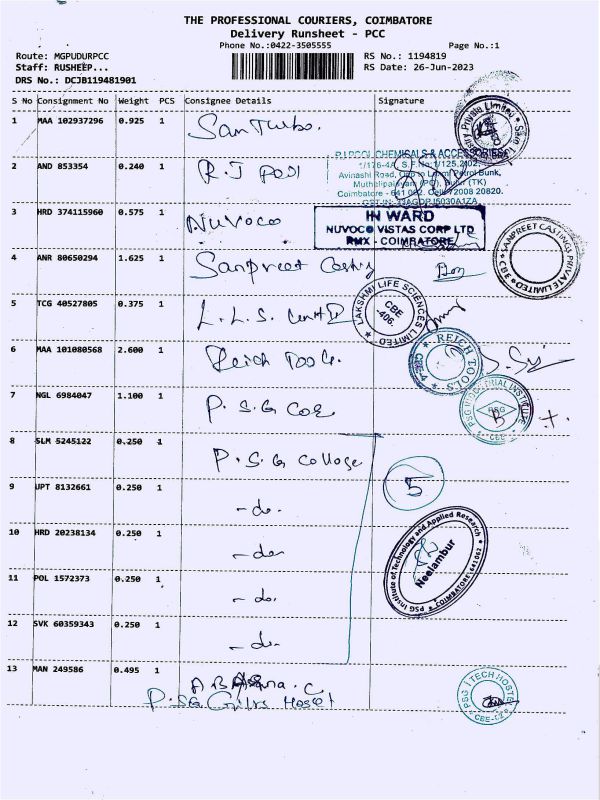 THE PROFESSIONAL COURIERS, COIMBATORE
Delivery Runsheet - PCC
Phone No.:0422-3505555 Page No.:1
Route: MGPUDURPCC RS No.: 1194819
Staff: RUSHEEP... RS Date: 26-Jun-2023
DRS No.: DCJB119481901
S No Consignment No Weight PCS Consignee Details Signature
1 MAA 102937296 0.925 1 San Turbo.
2 AND 853354 0.240 1 R.J pool
R J POOL CHEMICALS & ACCESSORIES
Avinashi Road, Petrol Bunk,
Coimbatore
3 HRD 374115960 0.575 1 Nuvoco
IN WARD
NUVOCO VISTAS CORP LTD
RMX - COIMBATORE
4 ANR 80650294 1.625 1 Sanpreet
SANPREET CASTINGS PRIVATE LIMITED CBE
5 TCG 40527805 0.375 1 L.L.S.
LAKSHMI LIFE SCIENCES LIMITED
CBE
-406.
6 MAA 101080568 2.600 1 Reich Tools.
REICH TOOLS
CBE-4
7 NGL 6984047 1.100 1 P.S.G
PSG INDUSTRIAL INSTITUTE
PSG
CBE
8 SLM 5245122 0.250 1 P.S.G College
5
9 UPT 8132661 0.250 1 -do.
10 HRD 20238134 0.250 1 -do-
PSG Institute of Technology and Applied Research
Neelambur
COIMBATORE-641 062
11 POL 1572373 0.250 1 -do.
12 SVK 60359343 0.250 1 -do-
13 MAN 249586 0.495 1
P.SG Girls Hostel
PSG iTECH HOSTEL